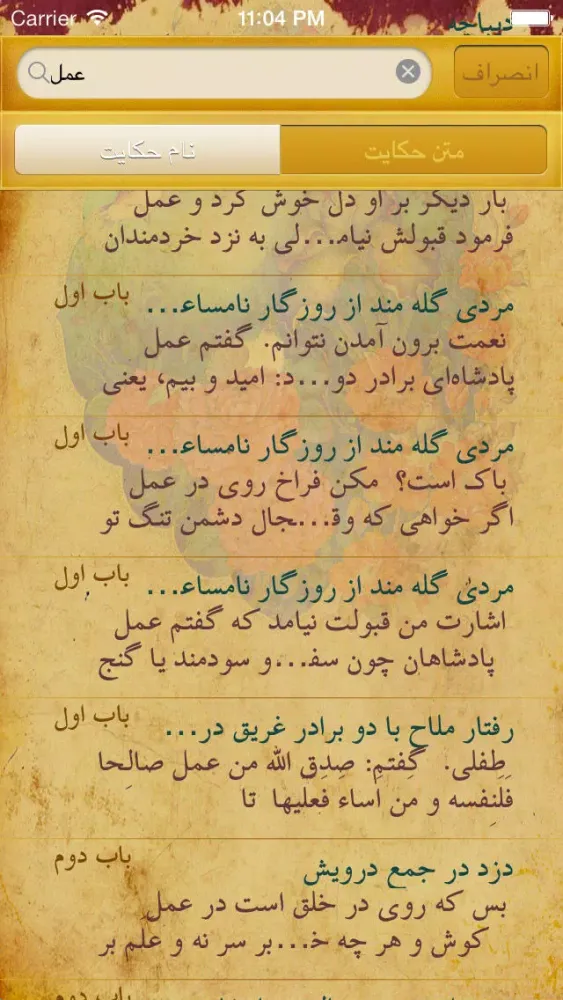 Carrier 11:04 PM
دیباچه
عمل
انصراف
نام حکایت
متن حکایت
بار دیگر بر او دل خوش کرد و عمل
فرمود قبولش نیامـ...لی به نزد خردمندان
مردی گله مند از روزگار نامساعـ...
باب اول
نعمت برون آمدن نتوانم. گفتم عمل
پادشاه‌ای برادر دو...د: امید و بیم، یعنی
مردی گله مند از روزگار نامساعـ...
باب اول
باک است؟ مکن فراخ روی در عمل
اگر خواهی که وقـ...جال دشمن تنگ تو
مردی گله مند از روزگار نامساعـ...
باب اول
اشارت من قبولت نیامد که گفتم عمل
پادشاهان چون سفـ...و سودمند یا گنج
رفتار ملاح با دو برادر غریق در...
باب اول
طِفلی. گفتم: صِدِقَ الله من عمل صالِحا
فَلِنِفسه و من اساءَ فَعلیها تا
دزد در جمع درویش
باب دوم
بس که روی در خلق است در عمل
کوش و هر چه خـ...بر سر نه و عَلَم بر
باب دوم